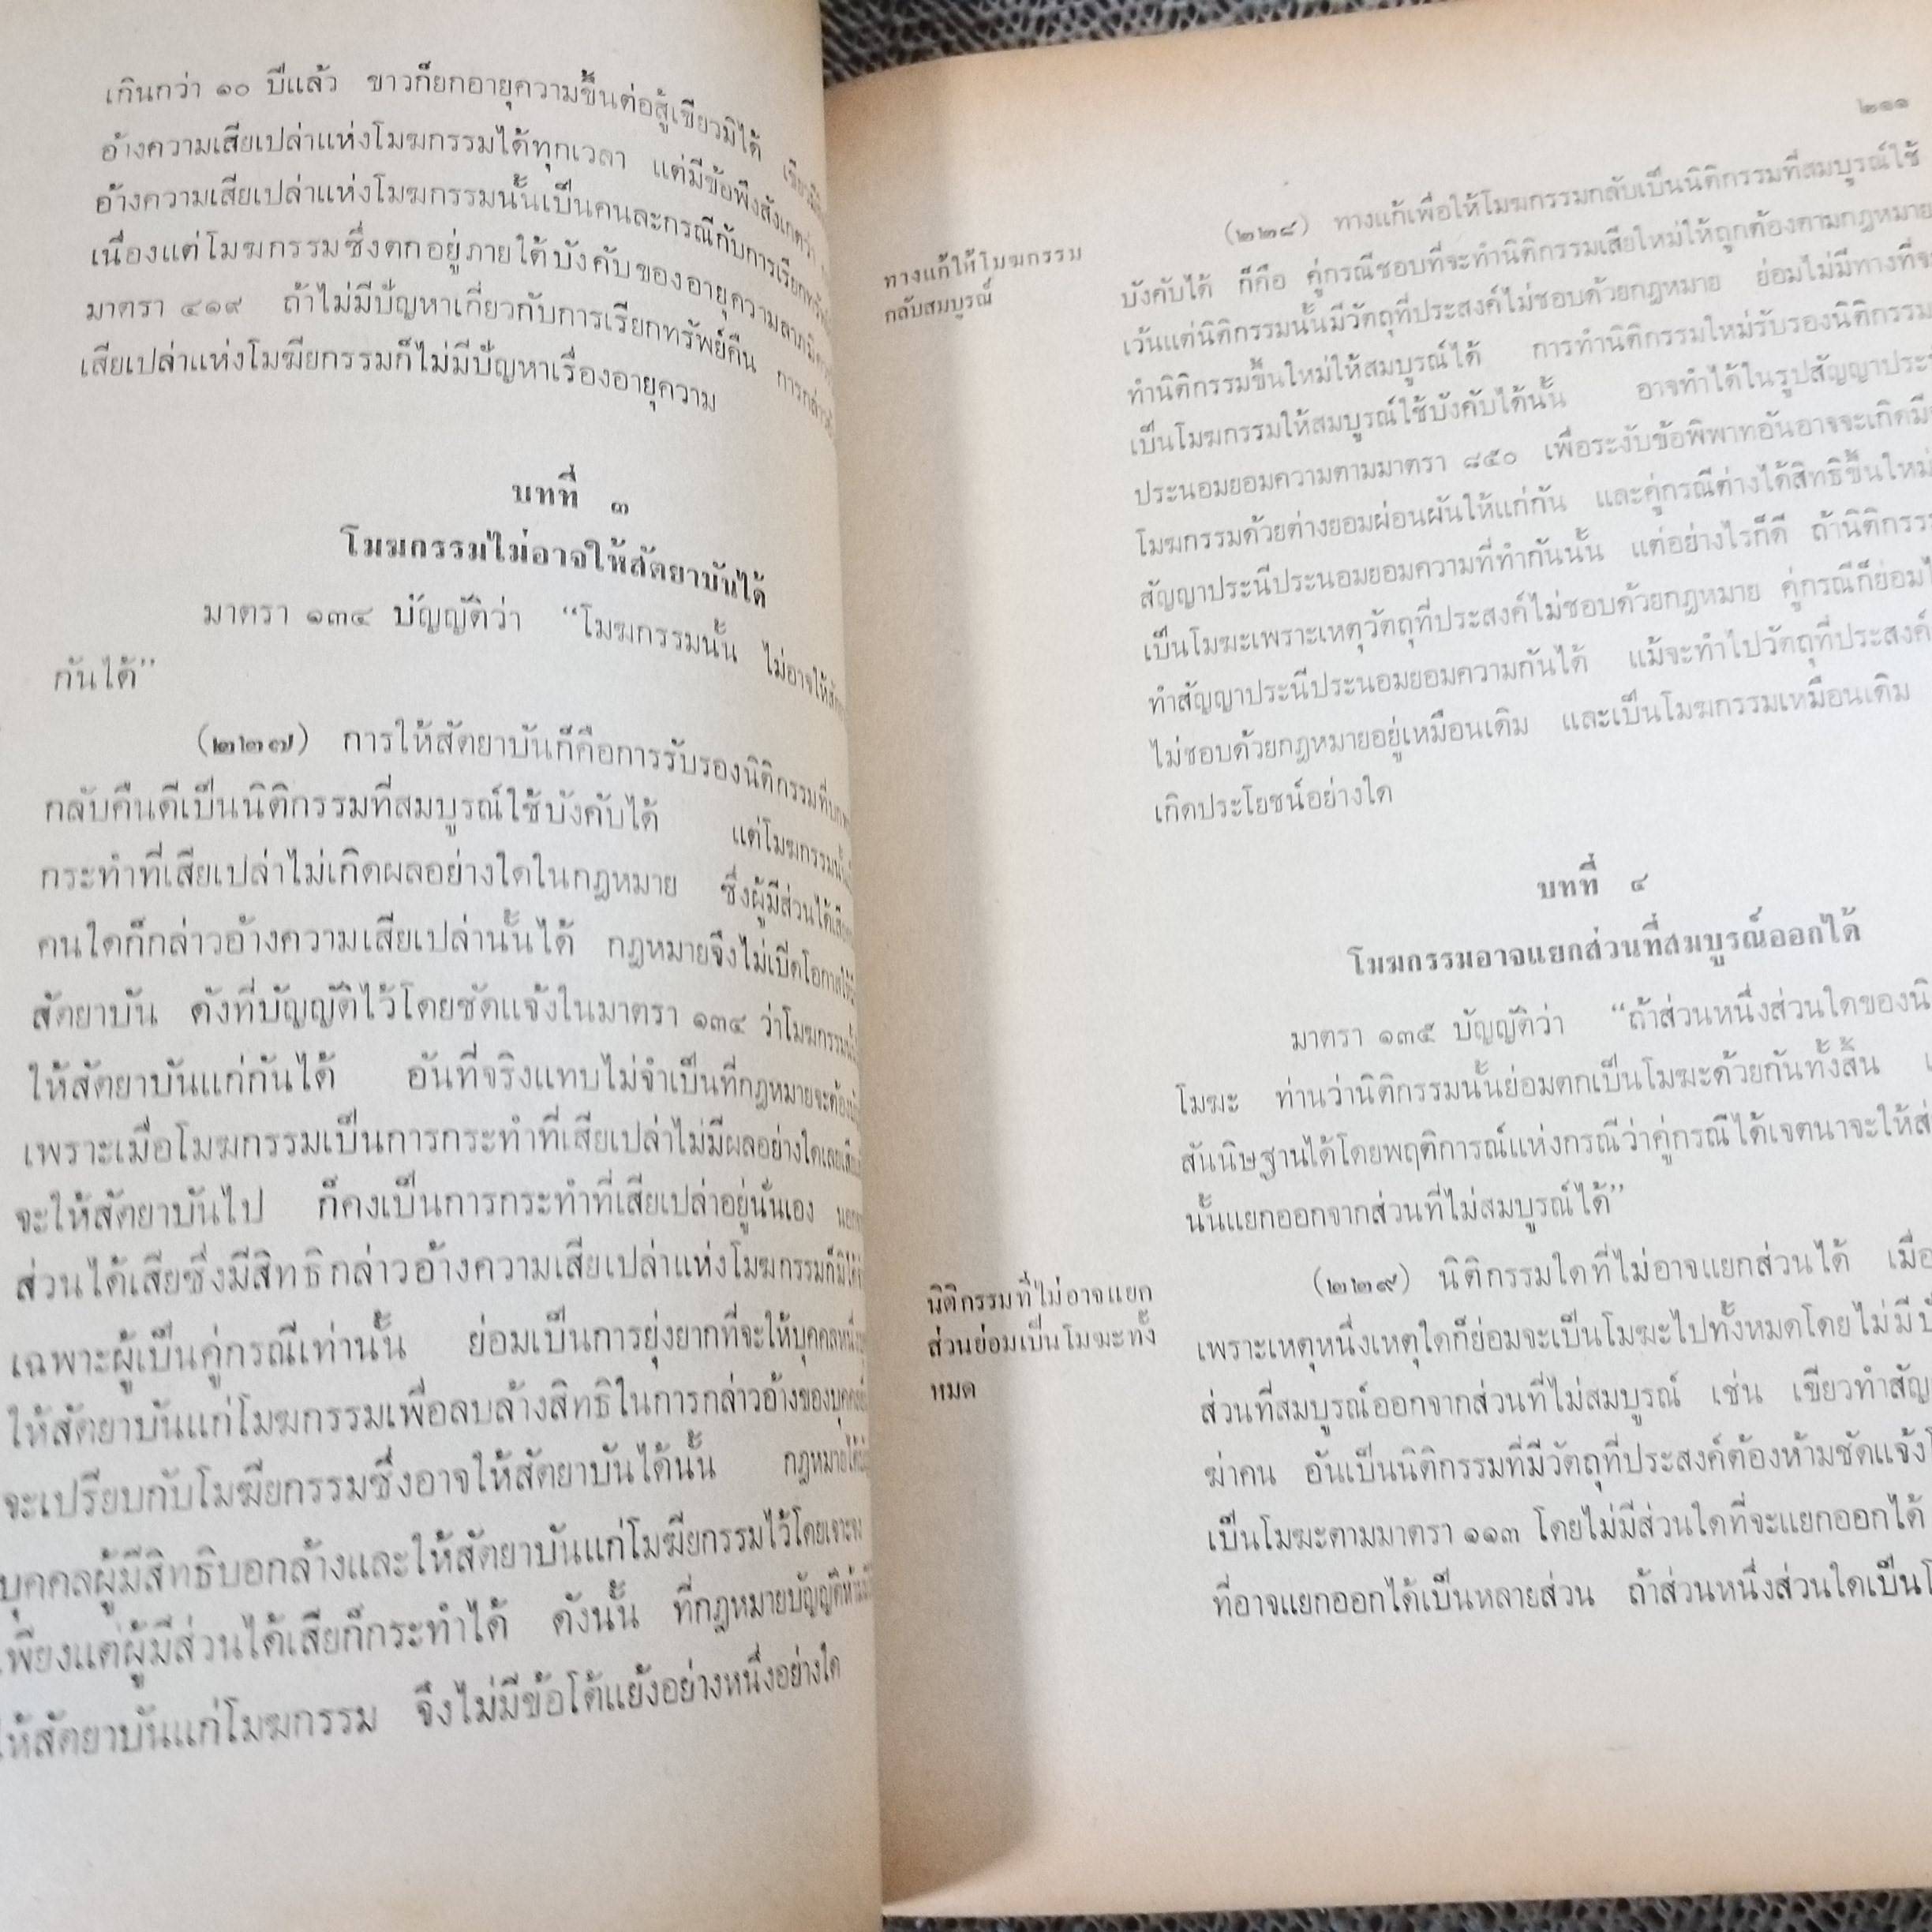 เกินกว่า ๑๐ ปีแล้ว ขาวก็ยกอายุความขึ้นต่อสู้เขียวมิได้
อ้างความเสียเปล่าแห่งโมฆกรรมได้ทุกเวลา แต่มีข้อพึงสังเกตว่า
อ้างความเสียเปล่าแห่งโมฆกรรมนั้นเป็นคนละกรณีกับการเรียกทรัพย์
เนื่องแต่โมฆกรรมซึ่งตกอยู่ภายใต้บังคับของอายุความลาภมิควร
มาตรา ๔๑๙ ถ้าไม่มีปัญหาเกี่ยวกับการเรียกทรัพย์คืน การกล่าว
เสียเปล่าแห่งโมฆียกรรมก็ไม่มีปัญหาเรื่องอายุความ
บทที่ ๓
โมฆกรรมไม่อาจให้สัตยาบันได้
มาตรา ๑๓๔ บัญญัติว่า “โมฆกรรมนั้น ไม่อาจให้
กันได้”
(๒๒๗) การให้สัตยาบันก็คือการรับรองนิติกรรมที่
กลับคืนดีเป็นนิติกรรมที่สมบูรณ์ใช้บังคับได้ แต่โมฆกรรมนั้น
กระทำที่เสียเปล่าไม่เกิดผลอย่างใดในกฎหมาย ซึ่งผู้มีส่วนได้เสีย
คนใดก็กล่าวอ้างความเสียเปล่านั้นได้ กฎหมายจึงไม่เปิดโอกาสให้
สัตยาบัน ดังที่บัญญัติไว้โดยชัดแจ้งในมาตรา ๑๓๔ ว่าโมฆกรรมนั้น
ให้สัตยาบันแก่กันได้ อันที่จริงแทบไม่จำเป็นที่กฎหมายจะต้อง
เพราะเมื่อโมฆกรรมเป็นการกระทำที่เสียเปล่าไม่มีผลอย่างใดเลย
จะให้สัตยาบันไป ก็คงเป็นการกระทำที่เสียเปล่าอยู่นั่นเอง
ส่วนได้เสียซึ่งมีสิทธิกล่าวอ้างความเสียเปล่าแห่งโมฆกรรมก็มิได้
เฉพาะผู้เป็นคู่กรณีเท่านั้น ย่อมเป็นการยุ่งยากที่จะให้บุคคลหนึ่ง
ให้สัตยาบันแก่โมฆกรรมเพื่อลบล้างสิทธิในการกล่าวอ้างของบุคคล
จะเปรียบกับโมฆียกรรมซึ่งอาจให้สัตยาบันได้นั้น กฎหมายได้
บุคคลผู้มีสิทธิบอกล้างและให้สัตยาบันแก่โมฆียกรรมไว้โดยเจาะจง
เพียงแต่ผู้มีส่วนได้เสียก็กระทำได้ ดังนั้น ที่กฎหมายบัญญัติห้าม
ให้สัตยาบันแก่โมฆกรรม จึงไม่มีข้อโต้แย้งอย่างหนึ่งอย่างใด
๒๑๑
ทางแก้ให้โมฆกรรม
กลับสมบูรณ์
(๒๒๘) ทางแก้เพื่อให้โมฆกรรมกลับเป็นนิติกรรมที่สมบูรณ์ใช้
บังคับได้ ก็คือ คู่กรณีชอบที่จะทำนิติกรรมเสียใหม่ให้ถูกต้องตามกฎหมาย
เว้นแต่นิติกรรมนั้นมีวัตถุที่ประสงค์ไม่ชอบด้วยกฎหมาย ย่อมไม่มีทางที่จะ
ทำนิติกรรมขึ้นใหม่ให้สมบูรณ์ได้ การทำนิติกรรมใหม่รับรองนิติกรรม
เป็นโมฆกรรมให้สมบูรณ์ใช้บังคับได้นั้น อาจทำได้ในรูปสัญญาประ
ประนอมยอมความตามมาตรา ๘๕๐ เพื่อระงับข้อพิพาทอันอาจจะเกิดมี
โมฆกรรมด้วยต่างยอมผ่อนผันให้แก่กัน และคู่กรณีต่างได้สิทธิขึ้นใหม่
สัญญาประนีประนอมยอมความที่ทำกันนั้น แต่อย่างไรก็ดี ถ้านิติกรร
เป็นโมฆะเพราะเหตุวัตถุที่ประสงค์ไม่ชอบด้วยกฎหมาย คู่กรณีก็ย่อม
ทำสัญญาประนีประนอมยอมความกันได้ แม้จะทำไปวัตถุที่ประสงค์
ไม่ชอบด้วยกฎหมายอยู่เหมือนเดิม และเป็นโมฆกรรมเหมือนเดิม
เกิดประโยชน์อย่างใด
บทที่ ๔
โมฆกรรมอาจแยกส่วนที่สมบูรณ์ออกได้
มาตรา ๑๓๕ บัญญัติว่า “ถ้าส่วนหนึ่งส่วนใดของนิ
โมฆะ ท่านว่านิติกรรมนั้นย่อมตกเป็นโมฆะด้วยกันทั้งสิ้น
สันนิษฐานได้โดยพฤติการณ์แห่งกรณีว่าคู่กรณีได้เจตนาจะให้ส่
นั้นแยกออกจากส่วนที่ไม่สมบูรณ์ได้”
นิติกรรมที่ไม่อาจแยก
ส่วนย่อมเป็นโมฆะทั้ง
หมด
(๒๒๙) นิติกรรมใดที่ไม่อาจแยกส่วนได้ เมื่อ
เพราะเหตุหนึ่งเหตุใดก็ย่อมจะเป็นโมฆะไปทั้งหมดโดยไม่มีปั
ส่วนที่สมบูรณ์ออกจากส่วนที่ไม่สมบูรณ์ เช่น เขียวทำสัญ
ฆ่าคน อันเป็นนิติกรรมที่มีวัตถุที่ประสงค์ต้องห้ามชัดแจ้ง
เป็นโมฆะตามมาตรา ๑๑๓ โดยไม่มีส่วนใดที่จะแยกออกได้
ที่อาจแยกออกได้เป็นหลายส่วน ถ้าส่วนหนึ่งส่วนใดเป็นโ